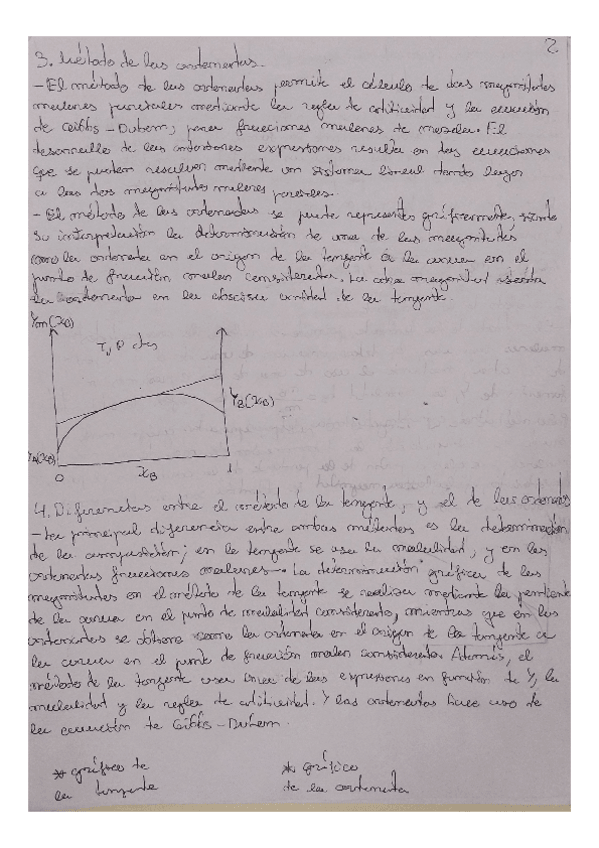 2.
3. Método de las ordenadas.
- El método de las ordenadas permite el cálculo de dos magnitudes
molares parciales mediante la regla de aditividad y la ecuación
de Gibbs-Duhem, para fracciones molares de mezcla. El
desarrollo de las anteriores expresiones resulta en dos ecuaciones
que se pueden resolver mediante un sistema lineal dando lugar
a las dos magnitudes molares parciales.
- El método de las ordenadas se puede representar gráficamente, siendo
su interpretación la determinación de una de las magnitudes
como la ordenada en el origen de la tangente a la curva en el
punto de fracción molar considerada. La otra magnitud sería
la ordenada en la abscisa unidad de la tangente.
Ym(xB)
T, P ctes
YB(xB)
YA(xB)
0 xB 1
4. Diferencias entre el método de la tangente, y el de las ordenadas
- La principal diferencia entre ambos métodos es la determinación
de la composición; en la tangente se usa la molalidad, y en las
ordenadas fracciones molares. La determinación gráfica de las
magnitudes en el método de la tangente se realiza mediante la pendiente
de la curva en el punto de molalidad considerado, mientras que en las
ordenadas se obtiene como la ordenada en el origen de la tangente a
la curva en el punto de fracción molar considerada. Además, el
método de la tangente usa de las expresiones en función de Y, la
molalidad y la regla de aditividad. Y las ordenadas hace uso de
la ecuación de Gibbs-Duhem.
* gráfico de * gráfico
la tangente de la ordenada